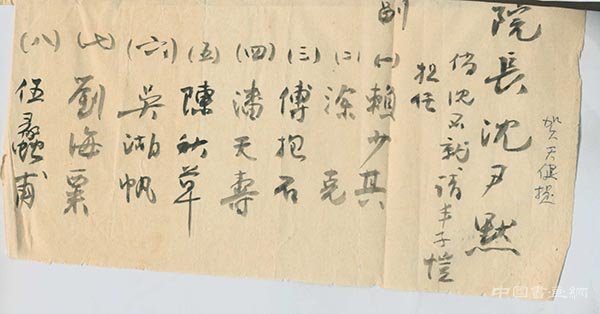 贺天健提
院長沈尹默
倘沈不就請丰子愷
担任
副
(一)賴少其
(二)涂克
(三)傅抱石
(四)潘天壽
(五)陳秋草
(六)吴湖帆
(七)劉海粟
(八)伍蠡甫
中国書畫網